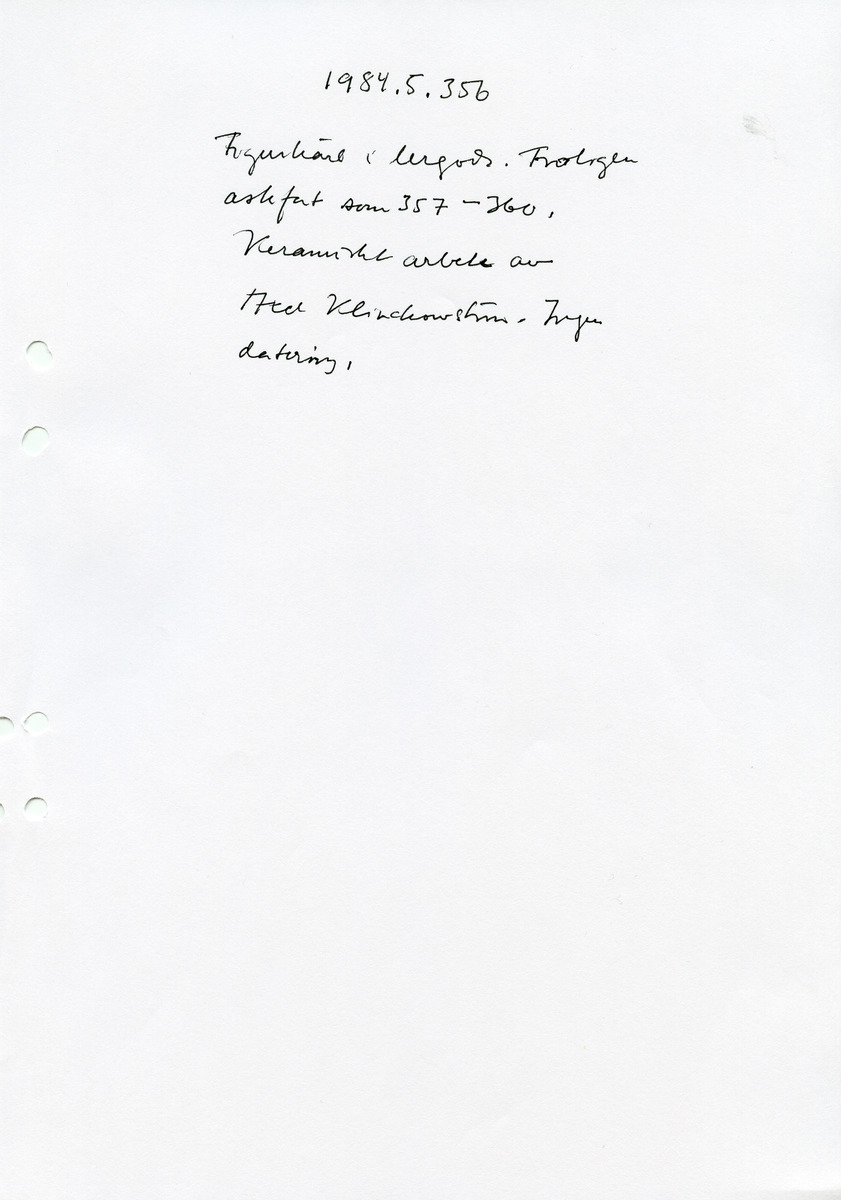 1984.5.356
Figurkärl i lergods. Troligen
askfat som 357–360.
Keramiskt arbete av
Axel Klinckowström. Ingen
datering.